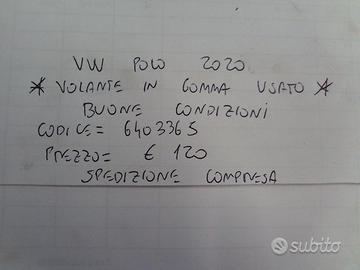 VW POLO 2020
* VOLANTE IN GOMMA USATO *
BUONE CONDIZIONI
CODICE = 6403365
PREZZO = € 120
SPEDIZIONE COMPRESA
subito